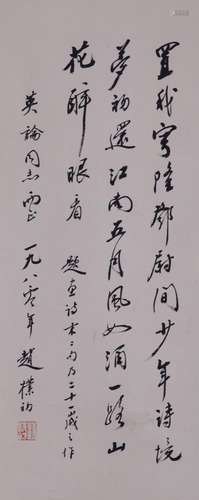 置我穹隆鄧尉間少年詩境
夢初還江南五月風如酒一路山
花醉眼看 題畫詩末二句乃二十一歲之作
英論同志正 一九八〇年 趙樸初